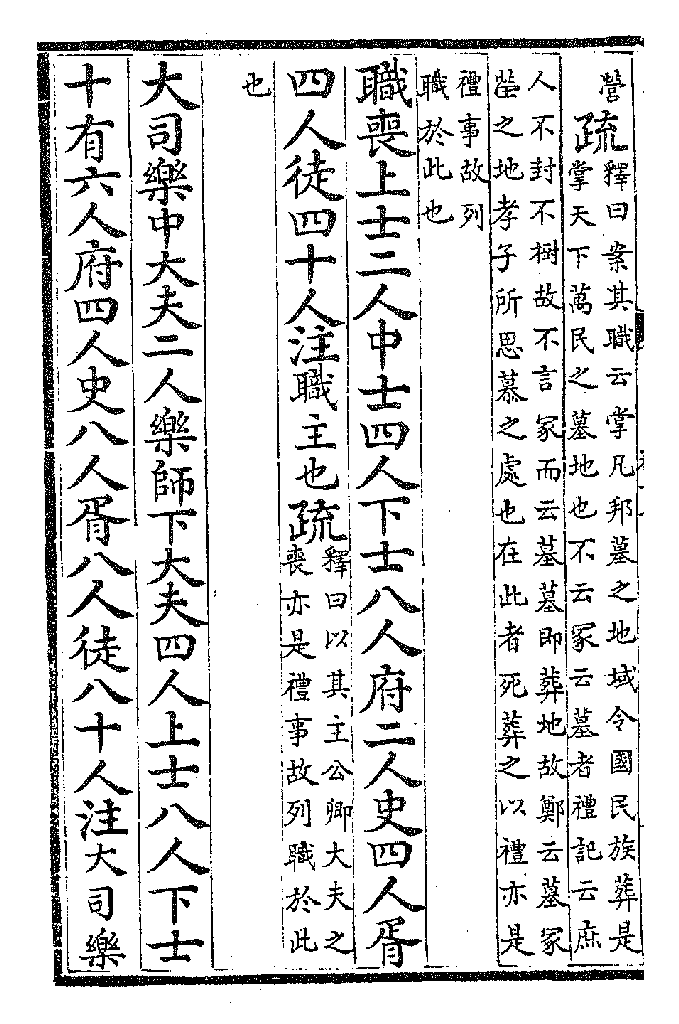 營疏釋曰案其職云掌凡邦墓之地域令國民族葬是
掌天下萬民之墓地也不云冢云墓者禮記云庶
人不封不樹故不言冢而云墓墓即葬地故鄭云墓冢
塋之地孝子所思慕之處也在此者死葬之以禮亦是
禮事故列
職於此也
職喪上士二人中士四人下士八人府二人史四人胥
四人徒四十人注職主也疏釋曰以其主公卿大夫之
喪亦是禮事故列職於此
也
大司樂中大夫二人樂師下大夫四人上士八人下士
十有六人府四人史八人胥八人徒八十人注大司樂